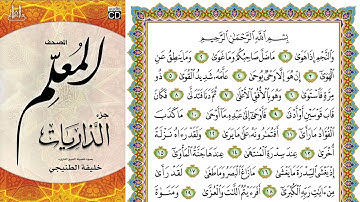 CD
المصحف
المعلم
جزء
الذاريات
خليفة الطنيجي
بِسْمِ اللَّهِ الرَّحْمَٰنِ الرَّحِيمِ
وَالنَّجْمِ إِذَا هَوَىٰ ١ مَا ضَلَّ صَاحِبُكُمْ وَمَا غَوَىٰ ٢ وَمَا يَنطِقُ عَنِ
الْهَوَىٰ ٣ إِنْ هُوَ إِلَّا وَحْيٌ يُوحَىٰ ٤ عَلَّمَهُ شَدِيدُ الْقُوَىٰ ٥
ذُو مِرَّةٍ فَاسْتَوَىٰ ٦ وَهُوَ بِالْأُفُقِ الْأَعْلَىٰ ٧ ثُمَّ دَنَا فَتَدَلَّىٰ ٨ فَكَانَ
قَابَ قَوْسَيْنِ أَوْ أَدْنَىٰ ٩ فَأَوْحَىٰ إِلَىٰ عَبْدِهِ مَا أَوْحَىٰ ١٠ مَا كَذَبَ
الْفُؤَادُ مَا رَأَىٰ ١١ أَفَتُمَارُونَهُ عَلَىٰ مَا يَرَىٰ ١٢ وَلَقَدْ رَآهُ نَزْلَةً
أُخْرَىٰ ١٣ عِندَ سِدْرَةِ الْمُنتَهَىٰ ١٤ عِندَهَا جَنَّةُ الْمَأْوَىٰ ١٥
إِذْ يَغْشَى السِّدْرَةَ مَا يَغْشَىٰ ١٦ مَا زَاغَ الْبَصَرُ وَمَا طَغَىٰ ١٧ لَقَدْ رَأَىٰ
مِنْ آيَاتِ رَبِّهِ الْكُبْرَىٰ ١٨ أَفَرَأَيْتُمُ اللَّاتَ وَالْعُزَّىٰ ١٩ وَمَنَاةَ